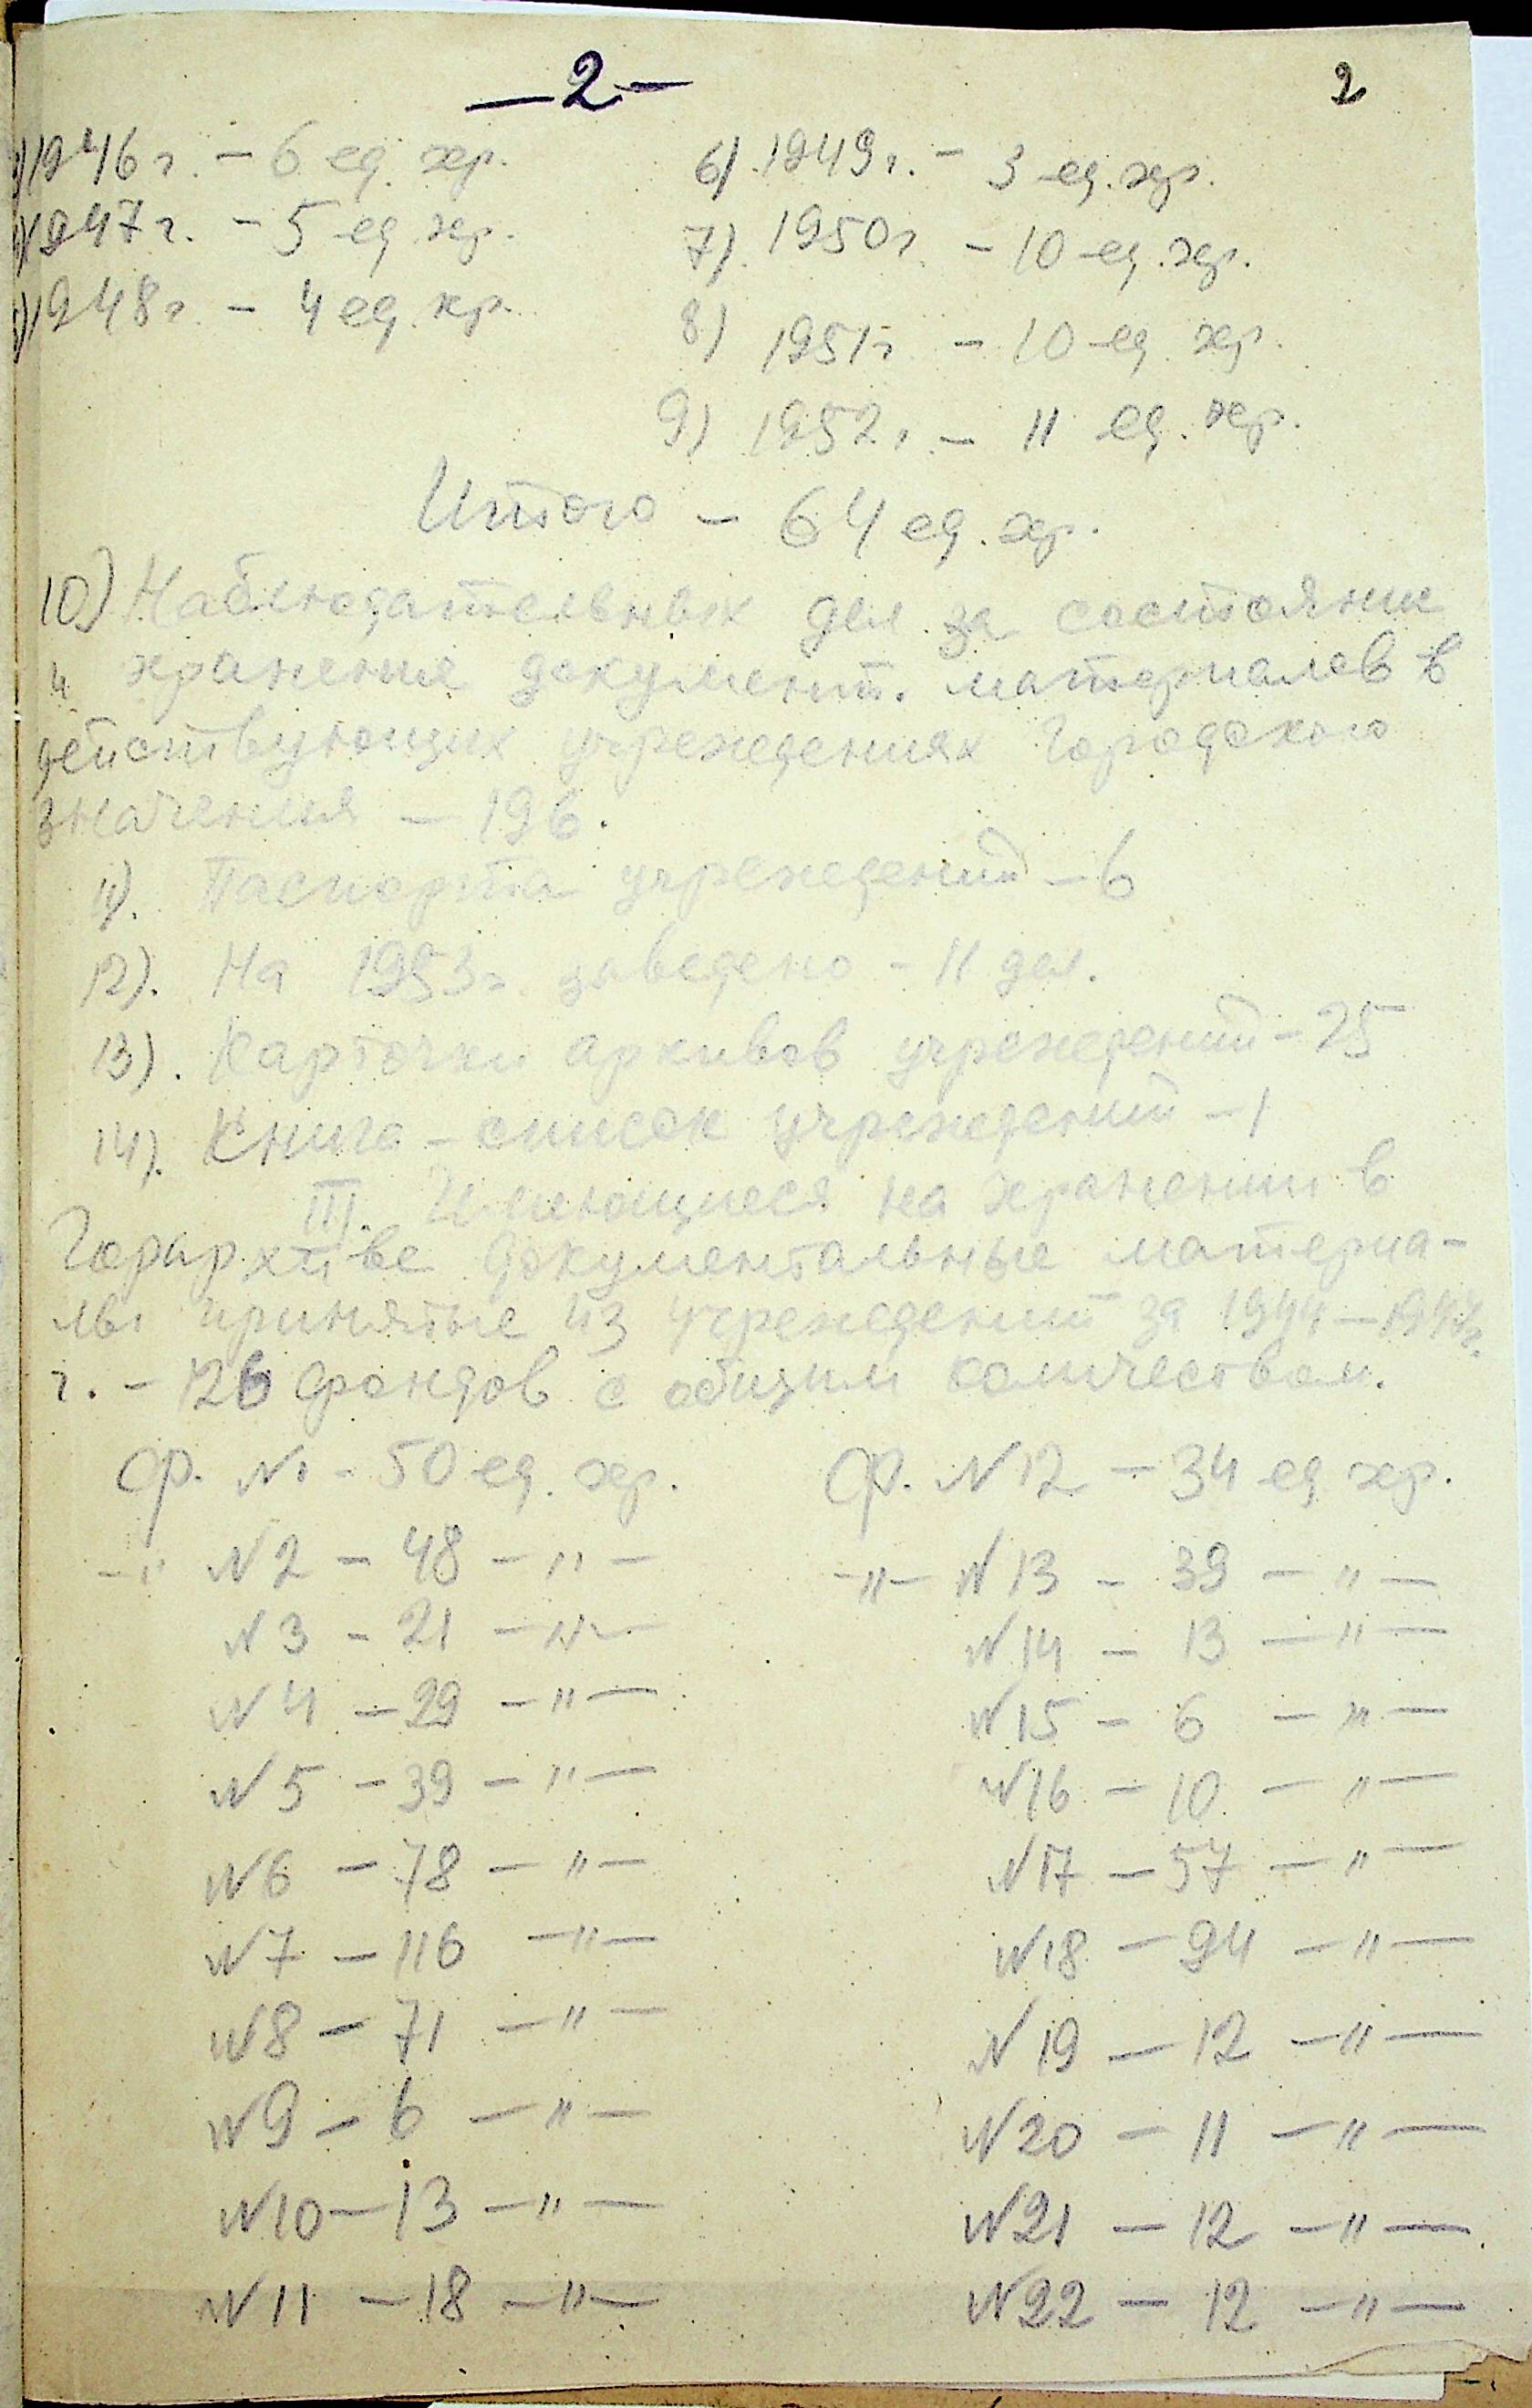 —2—
2
1946 г. – 6 ед. хр.
1947 г. – 5 ед. хр.
1948 г. – 4 ед. хр.
6) 1949 г. – 3 ед. хр.
7). 1950 г. – 10 ед. хр.
8) 1951 г. – 10 ед. хр.
9) 1952 г. – 11 ед. хр.
Итого – 64 ед. хр.
10) Наблюдательных дел за состояник
и хранения документ. материалов в
действующих учреждениях Городского
значения – 196.
11). Паспорта учреждений – 6
12). На 1953 г. заведено – 11 дел.
13). Карточки архивов учреждений – 25
14). Книга – список учреждений – 1
III. Имеющиеся на хранении в
Горархиве документальные материа-
лы принятые из учреждений за 1944 – 1947
г. – 126 фондов с общим количеством.
Ф. №1 – 50 ед. хр.
–"– №2 – 48 –"–
№3 – 21 –"–
№4 – 29 –"–
№5 – 39 –"–
№6 – 78 –"–
№7 – 116 –"–
№8 – 71 –"–
№9 – 6 –"–
№10 – 13 –"–
№11 – 18 –"–
Ф. №12 – 34 ед. хр.
–"– №13 – 39 –"–
№14 – 13 –"–
№15 – 6 –"–
№16 – 10 –"–
№17 – 57 –"–
№18 – 94 –"–
№19 – 12 –"–
№20 – 11 –"–
№21 – 12 –"–
№22 – 12 –"–